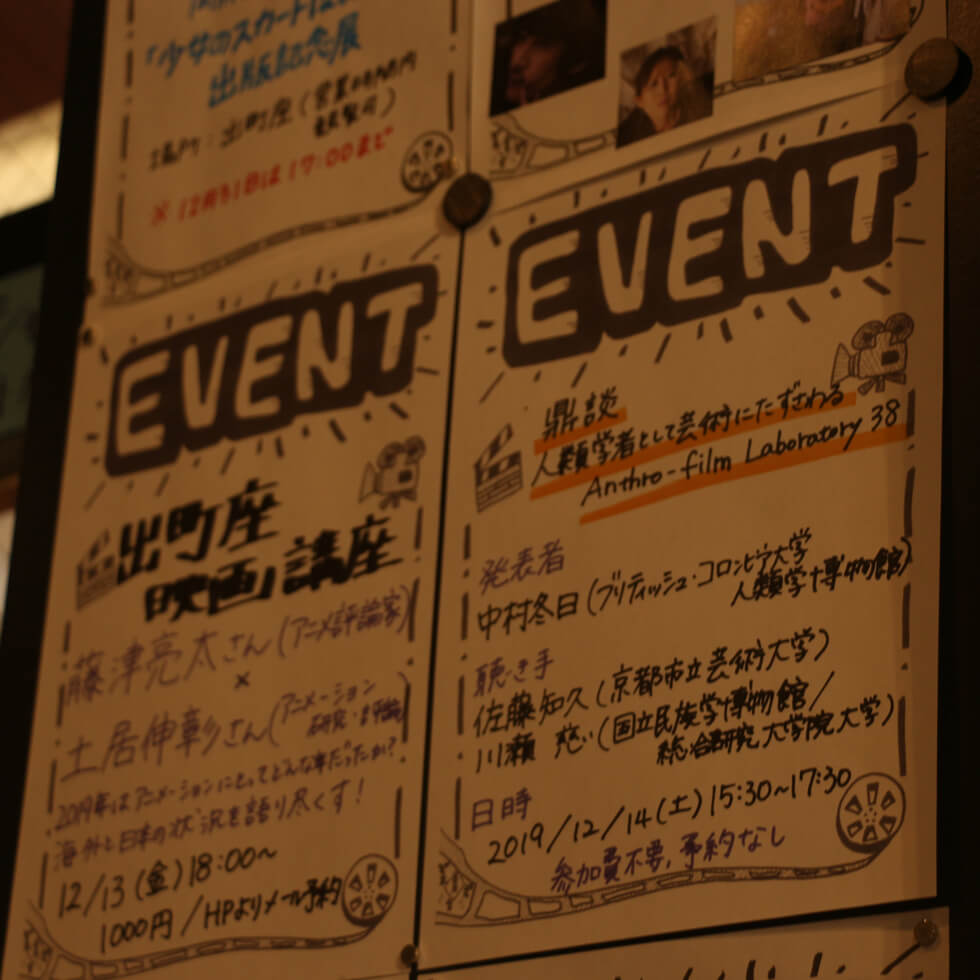 「少女のスカート
出版記念展
場所：出町座（営業時間内
観覧可）
※12月31日は17:00まで
EVENT
出町座
映画講座
藤津亮太さん（アニメ評論家）
×
土居伸彰さん（アニメーション
研究・評論）
2019年はアニメーションにとってどんな年だったか？
海外と日本の状況を語り尽くす！
12/13（金）18:00〜
1000円/HPよりメール予約
EVENT
鼎談
人類学者として芸術にたずさわる
Anthro-film Laboratory 38
発表者
中村冬日（ブリティッシュ・コロンビア大学
人類学博物館）
聴き手
佐藤知久（京都市立芸術大学）
川瀬 慈（国立民族学博物館/
総合研究大学院大学）
日時
2019/12/14（土）15:30〜17:30
参加費不要，予約なし